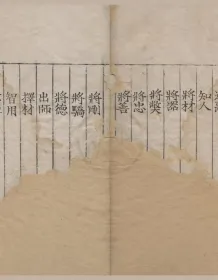 知人
將材
將器
將獘
將志
將善
將剛
將驕
將
出師
擇材
智用